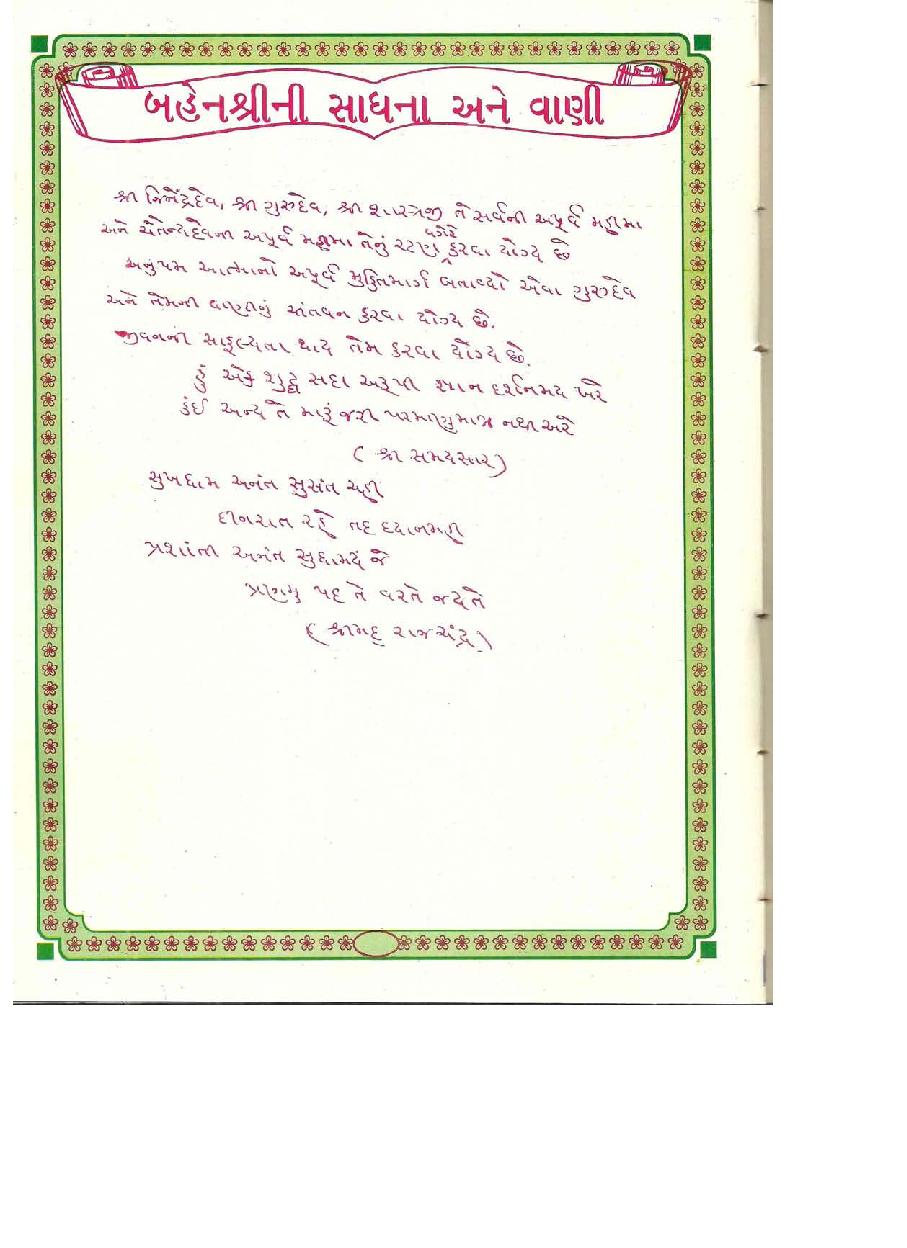 બહેનશ્રીની સાધના અને વાણી
શ્રી જિનેંદ્રદેવ, શ્રી ગુરુદેવ, શ્રી શાસ્ત્રજી તે સર્વની અપૂર્વ મહીમા
અને ચૈતન્યદેવની અપૂર્વ મહીમા તેનું રટણ વગેરે કરવા યોગ્ય છે
અનુપમ આત્માનો અપૂર્વ મુક્તિમાર્ગ બતાવ્યો એવા ગુરુદેવ
અને તેમની વાણીનું ચંતવન કરવા યોગ્ય છે.
જીવનની સાફલ્યતા થાય તેમ કરવા યોગ્ય છે.
હું એક શુદ્ધ સદા અરૂપી જ્ઞાન દર્શનમય ખરે
કંઈ અન્ય તે મારું જરી પરમાણુમાત્ર નથી અરે
( શ્રી સમયસાર)
સુખધામ અનંત સુસંત ચહી
દીનરાત રહે તદ ધ્યાનમહી
પ્રશાંતી અનંત સુધામય જે
પ્રણમુ પદ તે વરતે જયતે
( શ્રીમદ્ રાજચંદ્ર)